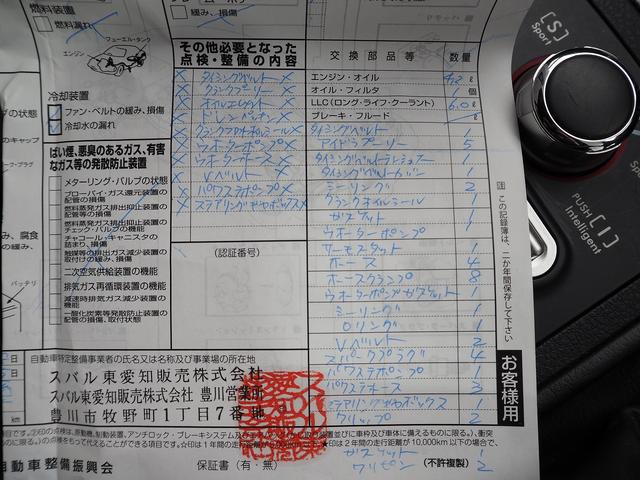 燃料装置
燃料漏れ
フューエル・タンク
エンジン
緩み、損傷
冷却装置
ファン・ベルトの緩み、損傷
冷却水の漏れ
ばい煙、悪臭のあるガス、有害なガス等の発散防止装置
メターリング・バルブの状態
ブローバイ・ガス還元装置の配管の損傷
燃料蒸発ガス排出抑止装置の配管等の損傷
燃料蒸発ガス排出抑止装置のチェック・バルブの機能
チャコール・キャニスタの詰まり、損傷
触媒等の排出ガス減少装置の取付けの緩み、損傷
二次空気供給装置の機能
排気ガス再循環装置の機能
減速時排気ガス減少装置の機能
一酸化炭素等発散防止装置の配管の損傷、取付状態
の状態
のキャップ
バッテリ
その他必要となった
点検・整備の内容
タイミングベルト
クランクプーリー
オイルエレメント
ドレンパッキン
クランクフロントオイルシール
ウオーターポンプ
ウオーターホース
Vベルト
パワステポンプ
ステアリングギヤボックス
(認証番号)
交換部品等 数量
エンジン・オイル 4.2 ℓ
オイル・フィルタ 1 個
LLC(ロング・ライフ・クーラント) 6.0 ℓ
ブレーキ・フルード ℓ
タイミングベルト 1
アイドラプーリー 5
タイミングベルトテンショナー 1
タイミングベルトカバー 1
シーリング 2
クランクオイルシール 1
ガスケット 1
ウオーターポンプ 1
サーモスタット 1
ホース 4
ホースクランプ 8
ウオーターポンプガスケット 1
シーリング 1
Oリング 1
Vベルト 2
スパークプラグ 4
パワステポンプ 1
パワステホース 3
ステアリングギヤボックス 1
クリップ 2
ガスケット 1
ワリピン 2
この記録簿は、二か年間保存して下さい
お客様用
自動車特定整備事業者の氏名又は名称及び事業場の所在地
スバル東愛知販売株式会社
スバル東愛知販売株式会社 豊川営業所
豊川市牧野町1丁目7番地
自動車整備振興会
保証書(有・無)
(不許複製)
[S]
Sport
PUSH
[I]
Intelligent